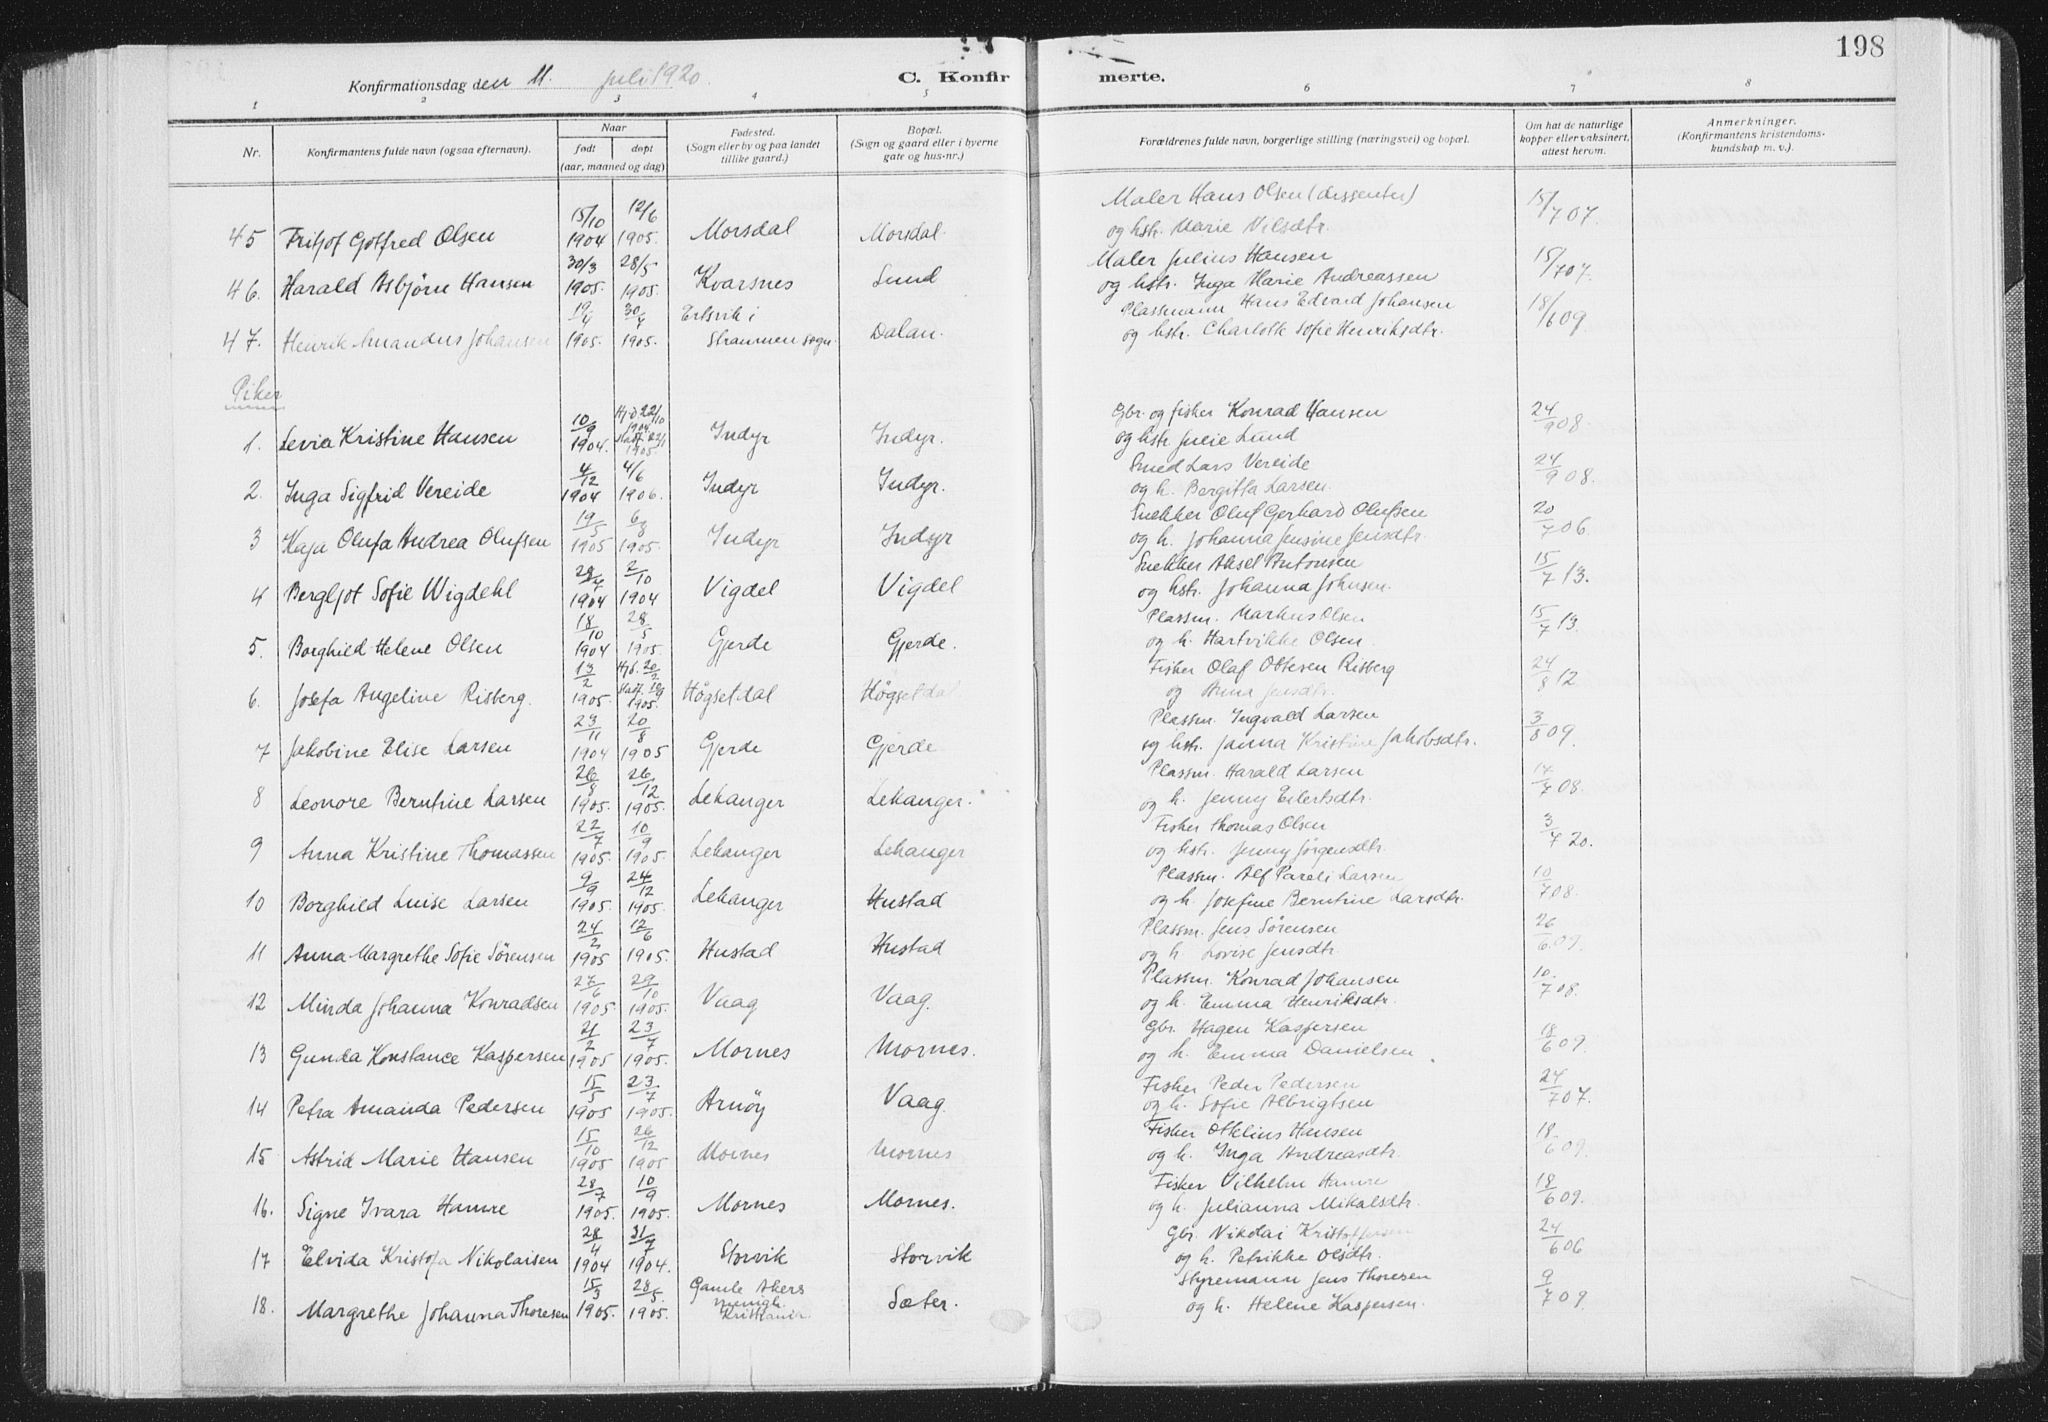 198
Konfirmationsdag den 11. juli 1920.
C. Konfirmerte.
1 2 3 4 5 6 7 8
Nr. Konfirmantens fulde navn (ogsaa efternavn). Naar født døpt (aar, maaned og dag) Fødested. (Sogn eller by og paa landet tillike gaard.) Bopæl. (Sogn og gaard eller i byerne gate og hus-nr.) Forældrenes fulde navn, borgerlige stilling (næringsvei) og bopæl. Om hat de naturlige kopper eller vaksinert, attest herom. Anmerkninger. (Konfirmantens kristendoms-kundskap m. v.).
45 Fritjof Gotfred Olsen 15/10 1904 12/6 1905. Morsdal Morsdal. Maler Hans Olsen (dissenter) og hstr. Marie Nilsdtr. 15/7 07.
46. Harald Asbjørn Hansen 30/3 1905. 28/5 1905. Kvarsnes Lund Maler Julius Hansen og hstr. Inga Marie Andreassen 15/7 07.
47. Henrik Amandus Johansen 19/4 1905. 30/7 1905. Ertsvik i Straumen sogn. Dalan. Plassmann Hans Edvard Johansen og hstr. Charlotte Sofie Henriksdtr. 18/6 09
Piker
1. Levia Kristine Hansen 10/9 1904. Hj.d. 22/10 1904 Stadf. 22/1 1905 Indyr Indyr. Gbr. og fisker Konrad Hansen og hstr. Julie Lund 24/9 08.
2. Inga Sigfrid Vereide 4/12 1904 4/6 1906. Indyr Indyr. Smed Lars Vereide og h. Bergitta Larsen. 24/9 08.
3 Kaja Olufa Andrea Olufsen 19/5 1905 6/8 1905. Indyr Indyr Snekker Oluf Gerhard Olufsen og h. Johanna Jensine Jensdtr. 20/7 06.
4 Bergljot Sofie Wigdehl 28/7 1904 2/10 1904 Vigdel Vigdel Snekker Aksel Antonsen og hstr. Johanna Johnsen. 15/7 13.
5. Borghild Helene Olsen 18/10 1904 28/5 1905. Gjerde Gjerde. Plassm. Markus Olsen og h. Hartvikke Olsen. 15/7 13.
6. Josefa Angeline Risberg. 13/2 1905. Hjd. 20/2 Stadf. 10/9 1905. Høgsetdal Høgsetdal Fisker Olaf Ottesen Risberg og Anna Jensdtr. 24/8 12
7 Jakobine Elise Larsen 23/11 1904 20/8 1905 Gjerde Gjerde Plassm. Ingvald Larsen og hstr. Janna Kristine Jakobsdtr. 3/8 09.
8 Leonore Berntine Larsen 26/8 1905. 26/12 1905. Lekanger Lekanger. Plassm. Harald Larsen og h. Jenny Eilertsdtr. 14/7 08.
9 Anna Kristine Thomassen 22/7 1905. 10/9 1905. Lekanger Lekanger Fisker Thomas Olsen og hstr. Jenny Jørgensdtr. 3/7 20.
10 Borghild Luise Larsen 9/9 1905. 24/12 1905. Lekanger Hustad Plassm. Alf Pareli Larsen og h. Josefine Berntine Larsdtr. 10/7 08.
11 Anna Margrethe Sofie Sörensen 24/2 1905 12/6 1905. Hustad Hustad Plassm. Jens Sörensen og h. Lovise Jensdtr. 26/6 09.
12 Minda Johanna Konradsen 27/6 1905 29/10 1905. Vaag Vaag. Plassm. Konrad Johansen og h. Emma Henriksdtr. 10/7 08.
13 Gunda Konstance Kaspersen 21/2 1905 23/7 1905. Mornes Mornes. Gbr. Hagen Kaspersen og h. Emma Danielsen. 18/6 09.
14 Petra Amanda Pedersen 15/5 1905 23/7 1905. Arnöy Vaag Fisker Peder Pedersen og h. Sofie Albrigtsen 24/7 07.
15 Astrid Marie Hansen 15/10 1905 26/12 1905 Mornes Mornes Fisker Ottelius Hansen og h. Inga Andreasdtr. 18/6 09.
16. Signe Ivara Hamre 28/7 1905. 10/9 1905. Mornes Mornes. Fisker Vilhelm Hamre og h. Julianna Mikalsdtr. 18/6 09.
17 Elvida Kristofa Nikolaisen 28/4 1904 31/7 1904. Storvik Storvik Gbr. Nikolai Kristoffersen og h. Petrikke Olsdtr. 24/6 06
18. Margrethe Johanna Thoresen 15/3 1905. 28/5. 1905. Gamle Akers menigh. Kristiania Sæter. Styremann Jens Thoresen og h. Helene Kaspersen. 9/7 09.